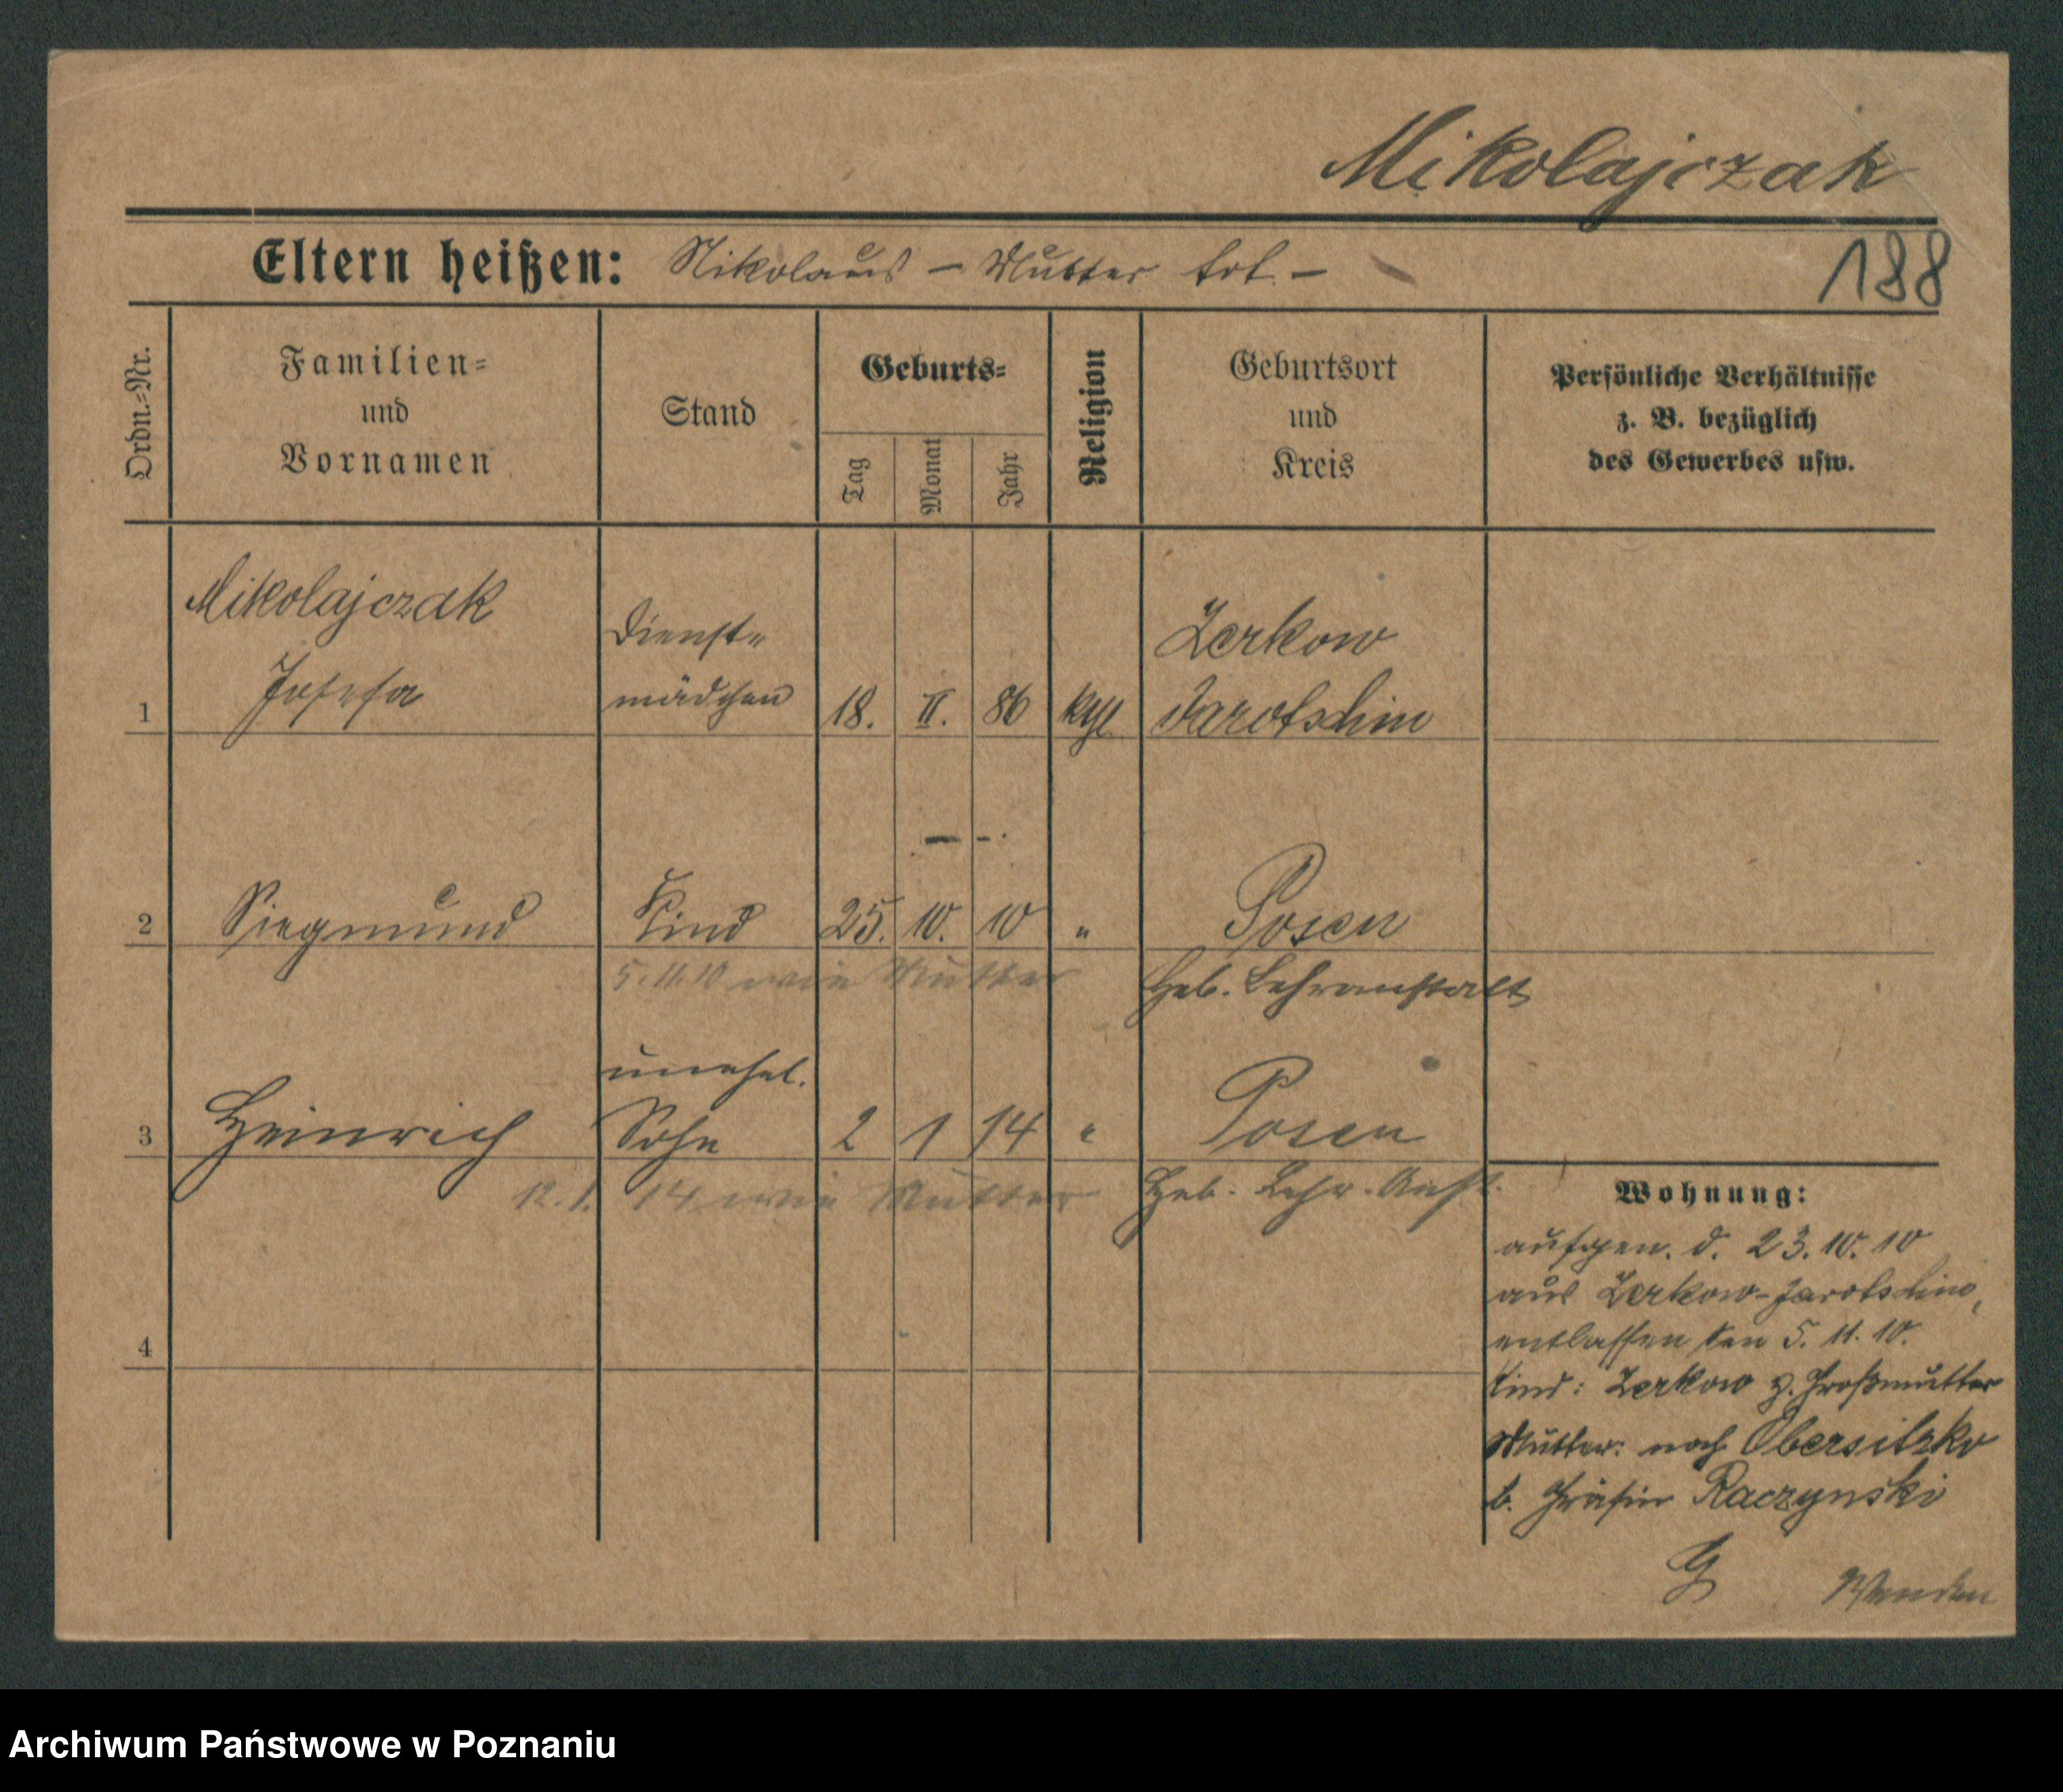 Mikolajczak
188
Eltern heißen: Nikolaus – Mutter tot –
Ordn.-Nr.
Familien-
und
Vornamen
Stand
Geburts-
Tag
Monat
Jahr
Religion
Geburtsort
und
Kreis
Persönliche Verhältnisse
z. B. bezüglich
des Gewerbes usw.
1
Mikolajczak
Josefa
Dienst-
mädchen
18. II. 86
kath
Zerkow
Jarotschin
2 Siegmund Kind 25. 10. 10 " Posen
5.11.10 wie Mutter
Heb. Lehranstalt
3 Heinrich
unehel.
Sohn
2 1 14 " Posen
12.1. 14 wie Mutter
Heb. Lehr. Anst.
4
Wohnung:
aufgen. d. 23.10.10
aus Zerkow-Jarotschin,
entlassen den 5.11.10.
Kind: Zerkow z. Großmutter
Mutter: nach Obersitzko
b. Gräfin Raczynski
Wenden
Archiwum Państwowe w Poznaniu